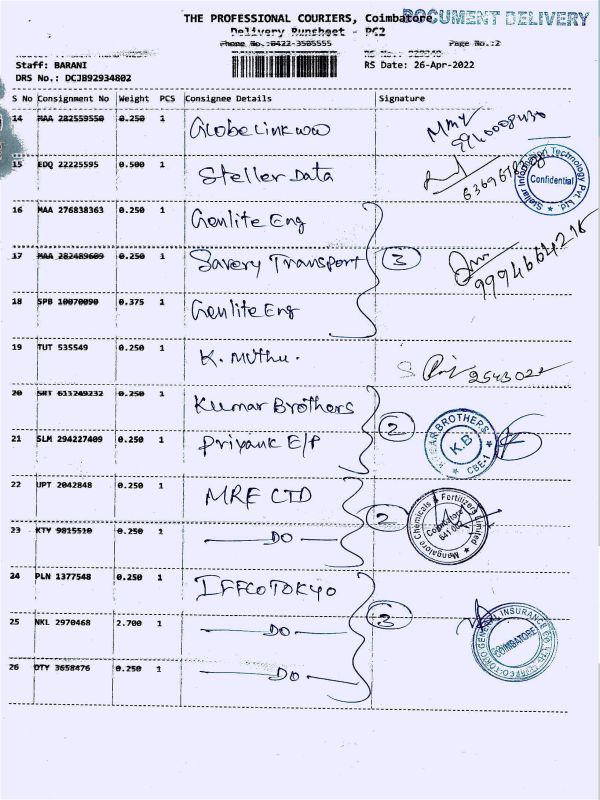 THE PROFESSIONAL COURIERS, Coimbatore
DOCUMENT DELIVERY
Delivery Runsheet - PC2
Phone No.:0422-3505555 Page No.:2
Staff: BARANI
RS Date: 26-Apr-2022
DRS No.: DCJB92934802
S No Consignment No Weight PCS Consignee Details Signature
14 MAA 282559550 0.250 1 Globe Link WW
15 EDQ 22225595 0.500 1 Steller Data
Stellar Information Technology Pvt. Ltd.
Confidential
16 MAA 276838363 0.250 1 Genlite Eng
17 MAA 282489609 0.250 1 Savery Transport 3
9994664215
18 SPB 10070090 0.375 1 Genlite Eng
19 TUT 535549 0.250 1 K. Muthu.
20 SRT 611249232 0.250 1 Kumar Brothers
21 SLM 294227409 0.250 1 Priyank E/P 2
KUMAR BROTHERS
K.B
CBE-1
22 UPT 2042848 0.250 1 MRF LTD
23 KTY 9815510 0.250 1 DO 2
Mangalore Chemicals & Fertilizers Limited
Coimbatore
641 002
24 PLN 1377548 0.250 1 IFFCO TOKYO
25 NKL 2970468 2.700 1 DO 3
IFFCO-TOKIO GENERAL INSURANCE CO. LTD.
COIMBATORE
26 OTY 3658476 0.250 1 DO